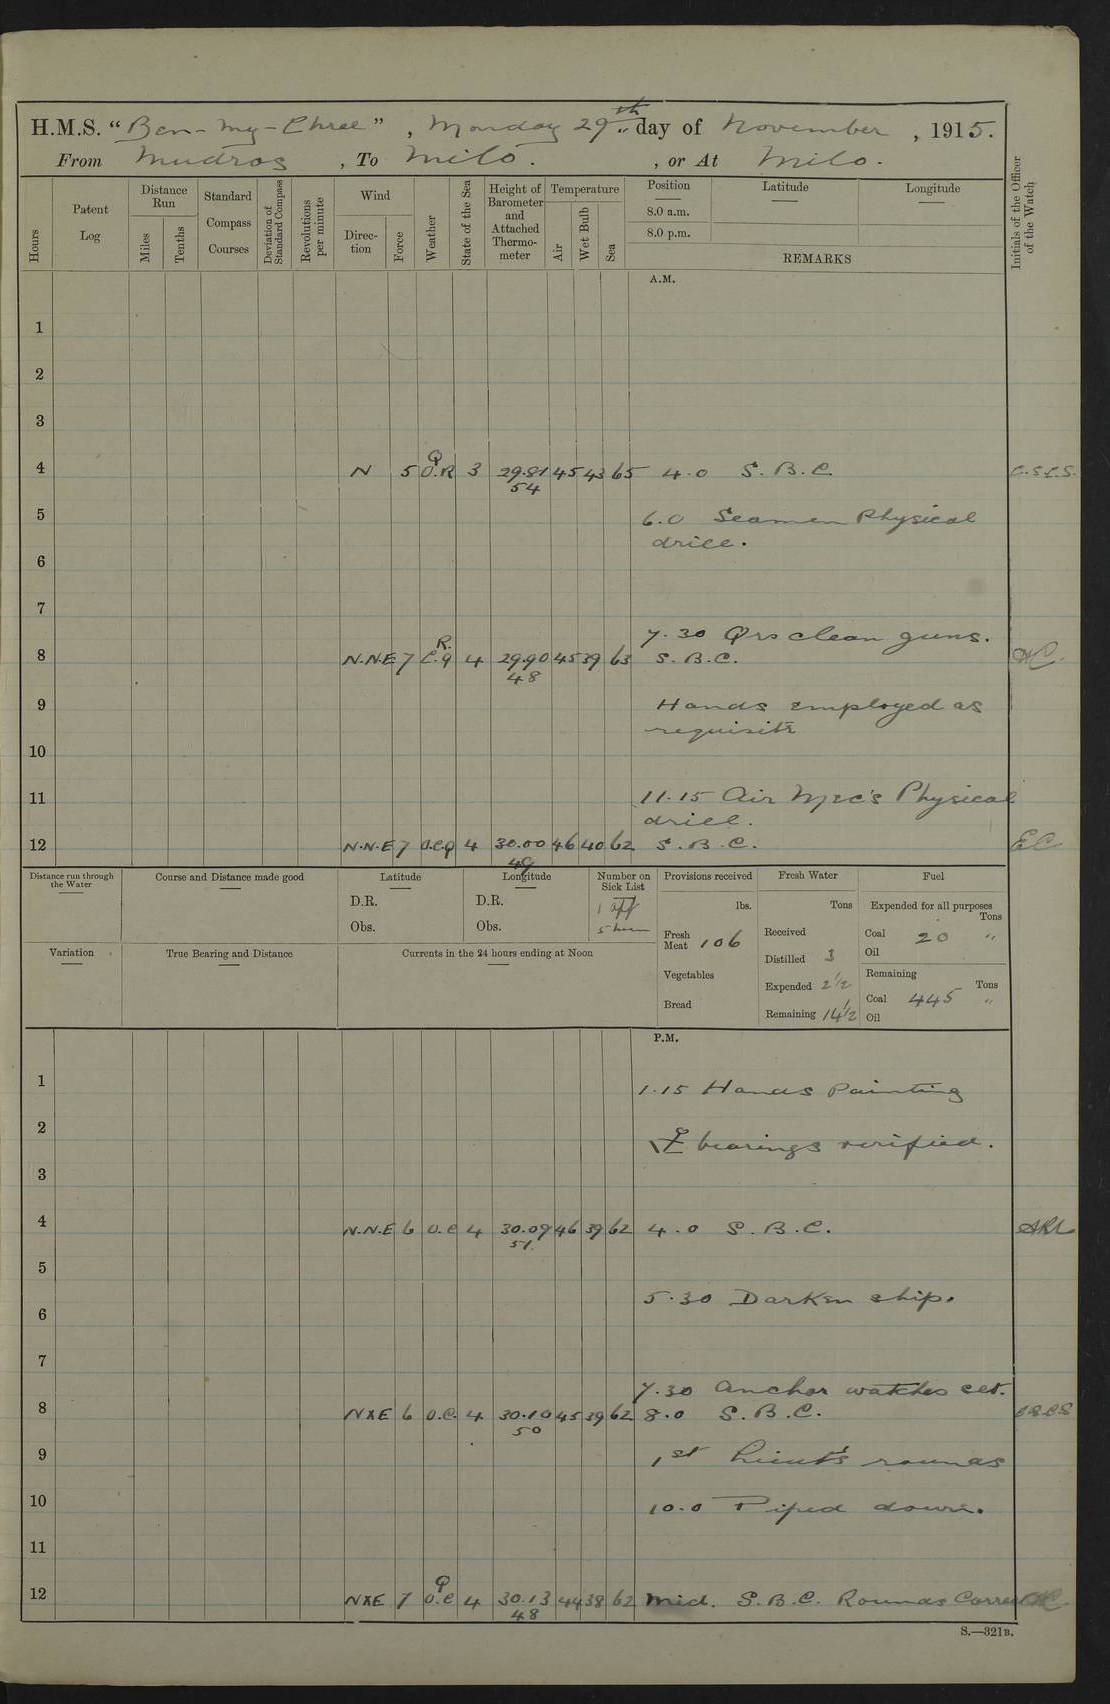 H.M.S. “Ben-my-Chree”, Monday 29th day of November, 1915.
From Mudros, To Milo. , or At Milo.
Hours
Patent Log
Distance Run
Miles
Tenths
Standard Compass Courses
Deviation of Standard Compass
Revolutions per minute
Wind
Direction
Force
Weather
State of the Sea
Height of Barometer and Attached Thermometer
Temperature
Air
Wet Bulb
Sea
Position
8.0 a.m.
8.0 p.m.
Latitude
Longitude
REMARKS
Initials of the Officer of the Watch
A.M.
1
2
3
4 N 5 Q O.R 3 29.81 54 45 43 65 4.0 S.B.C. C.S.C.S.
5 6.0 Seamen Physical
drill.
6
7
7.30 Qrs clean guns.
8 N.N.E 7 R. C.q 4 29.90 48 45 39 63 S.B.C.
9 Hands employed as
requisite
10
11 11.15 Air Mec's Physical
drill.
12 N.N.E 7 O.C.Q 4 30.00 49 46 40 62 S.B.C. EC
Distance run through the Water
Course and Distance made good
Latitude
D.R.
Obs.
Longitude
D.R.
Obs.
Number on Sick List
1 off
5 men
Provisions received
lbs.
Fresh Meat 106
Vegetables
Bread
Fresh Water
Tons
Received
Distilled 3
Expended 2 1/2
Remaining 14 1/2
Fuel
Expended for all purposes
Tons
Coal 20 "
Oil
Remaining
Tons
Coal 445 "
Oil
Variation
True Bearing and Distance
Currents in the 24 hours ending at Noon
P.M.
1 1.15 Hands Painting
2 bearings verified.
3
4 N.N.E 6 O.C 4 30.09 51. 46 39 62 4.0 S.B.C.
5
5.30 Darken ship.
6
7
7.30 Anchor watches set.
8 NXE 6 O.C. 4 30.10 50 45 39 62 8.0 S.B.C. CSCS
9 1st Lieut's rounds
10 10.0 Piped down.
11
12 NXE 7 Q O.C 4 30.13 48 44 38 62 Mid. S.B.C. Rounds Correct
S.—321B.